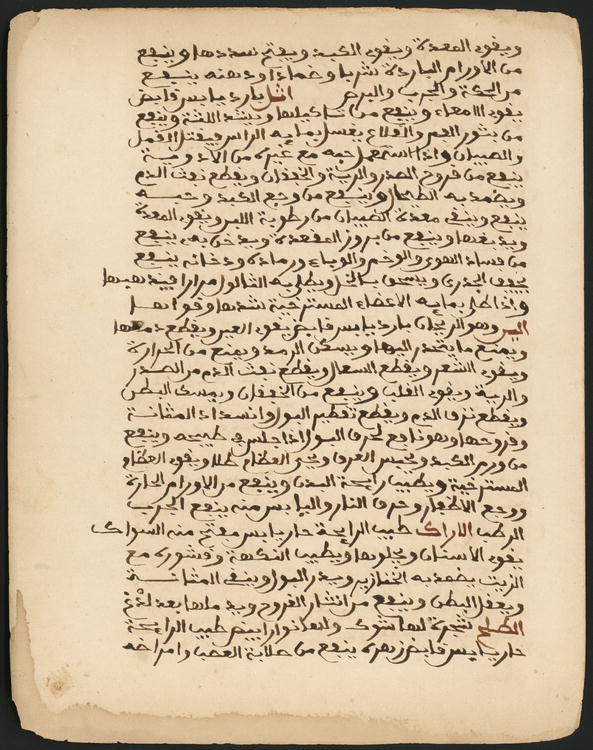 ويقوي المعدة ويقوي الكبد ويفتح سددها وينفع
من الأورام الباردة شربا وضمادا ودهنه ينفع
من الحكة والجرب والبرص اثل بارد يابس قابض
يقوي الامعاء وينفع من تآكلها ويشد اللثة وينفع
من بثور الفم والقلاع يغسل بمايه الراس ويقتل القمل
والصيبان واذا استعمل حبه مع غيره من الأدوية
ينفع من قروح الصدر والرية والخفقان ويقطع نفث الدم
ويضمد به الطحال وينفع من وجع الكبد وحبه
ينفع وينقي معدة الصبيان من رطوبة اللبن ويقوي المعدة
ويدبغها وينفع من بروز المقعدة ويدخن به ينفع
من فساد الهوى والوخم والوباء ورماده ودخانه ينفع
يجفف الجدري ويسحق بالخل ويطلى به الثالول مرارا فيذهبها
واذا طلي بمايه الأعضاء المسترخية شدها وقواها
وهو الريحان بارد يابس قابض يقوي العين ويقطع دمعها
ويمنع ما يتحدر اليها ويسكن الرمد ويمنع من الحرارة
ويقوي الشعر ويقطع السعال ويقطع نفث الدم من الصدر
والرية ويقوي القلب وينفع من الخفقان ويمسك البطن
ويقطع نزف الدم ويقطع تقطير البول وانسداد المثانة
وقروحها وهو نافع لحرق البول اذا جلس في طبيخه وينفع
من ورم الكبد ويحبس العرق ويجبر العظام طلاء ويقوي العظام
المسترخية ويطيب رايحة البدن وينفع من الاورام الحارة
ووجع الأظفار وحرق النار واليابس منه ينفع الجرب
الرطب الاراك طيب الرايحة حار يابس مفتح منه السواك
يقوي الأسنان ويجلوها ويطيب النكهة وقشوره مع
الزيت يضمد به الخنازير ويدر البول وينقي المثانة
ويعقل البطن وينفع من انتشار القروح ويدملها بعد
الطلح شجرة لها شوك ولها نوار ابيض طيب الرايحة
حار يابس قابض زهره ينفع من صلابة العصب وامراضه